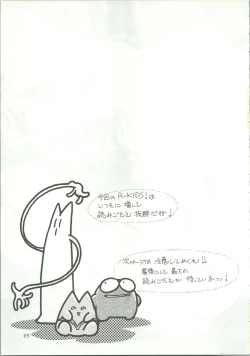 今回の R-KIDS! は
いつにも増して
読みごたえ 抜群だガ!
次ページは 注意してめくれ!!
最後にして 最大の
読みごたえが 待っているっっ!